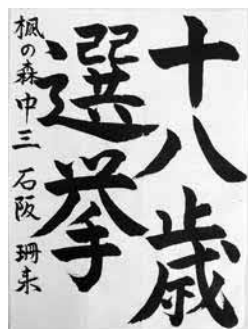 十八歳
選挙
楓の森中三 石阪 珊来